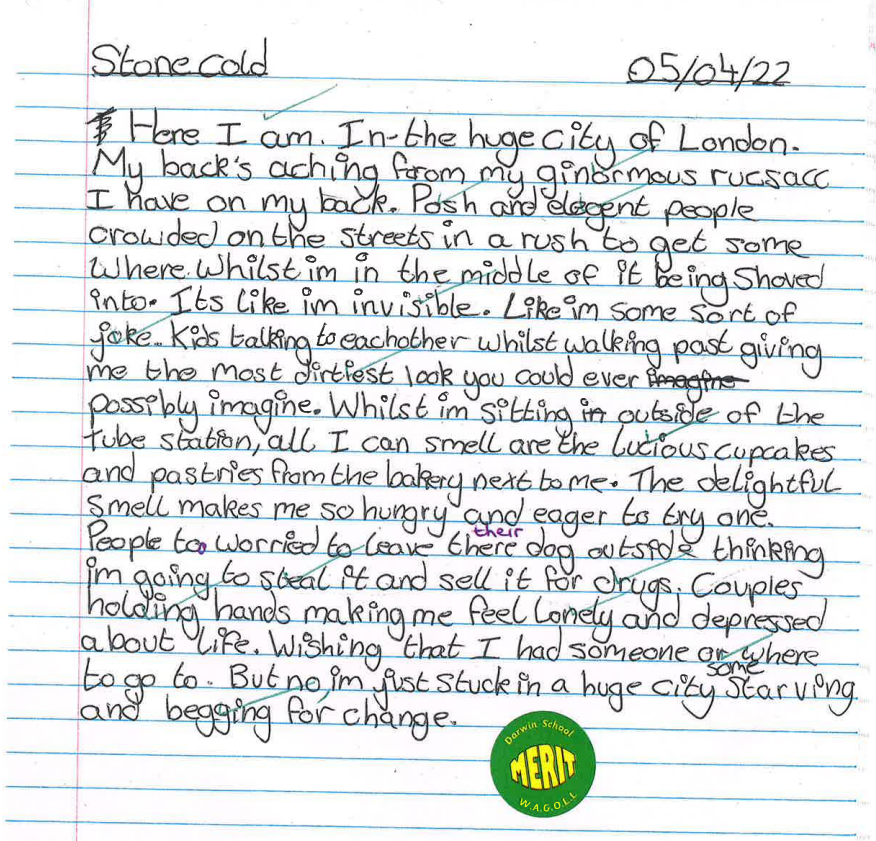 Stone cold 05/04/22
Here I am. In the huge city of London.
My back's aching from my ginormous rucsacc
I have on my back. Posh and elegent people
crowded on the streets in a rush to get some
where. Whilst im in the middle of it being shoved
into. Its like im invisible. Like im some sort of
joke. Kids talking to eachother whilst walking past giving
me the most dirtiest look you could ever imagine
possibly imagine. Whilst im sitting in outside of the
tube station, all I can smell are the lucious cupcakes
and pastries from the bakery next to me. The delightful
smell makes me so hungry and eager to try one.
their
People too worried to leave there dog outside thinking
im going to steal it and sell it for drugs. Couples
holding hands making me feel lonely and depressed
about life. Wishing that I had someone or where
some
to go to. But no, im just stuck in a huge city starving
and begging for change.
Darwin School
MERIT
W.A.G.O.L.L